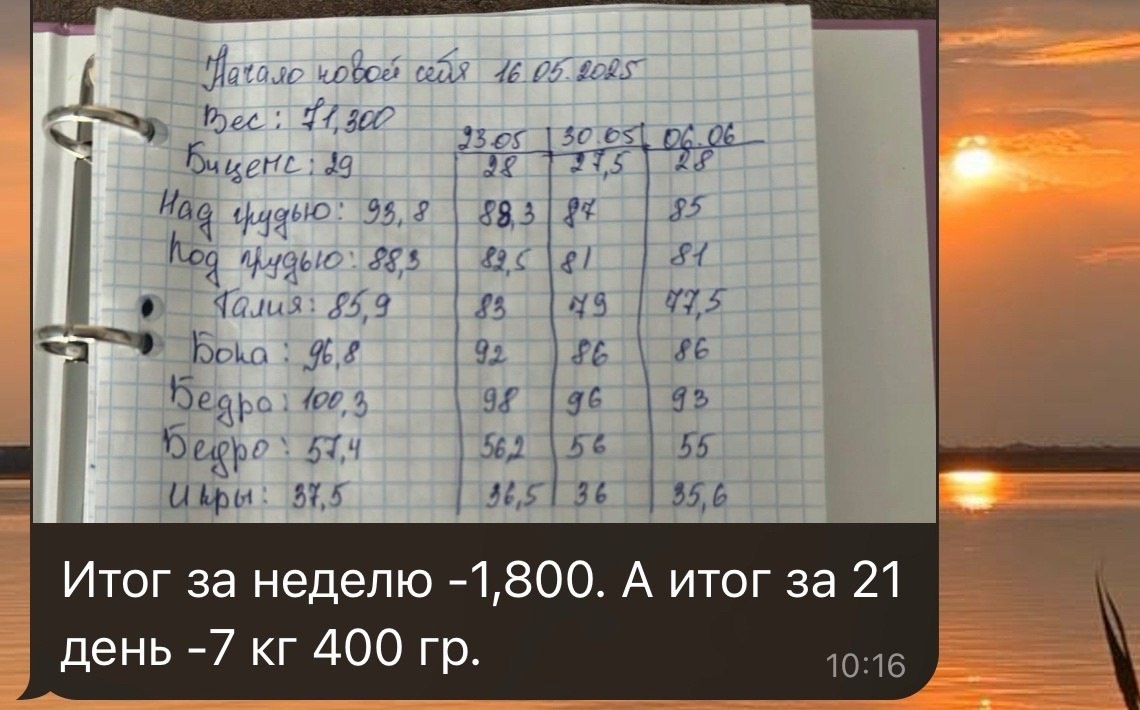 Начало новой себя 16.05.2025
Вес: 71,300
23.05 30.05 06.06
Бицепс: 29 28 27,5 28
Над грудью: 93,8 88,3 87 85
Под грудью: 88,3 82,5 81 81
Талия: 85,9 83 79 77,5
Бока: 96,8 92 86 86
Бедра: 100,3 98 96 93
Бедро: 57,4 56,2 56 55
Икры: 37,5 36,5 36 35,6
Итог за неделю -1,800. А итог за 21
день -7 кг 400 гр.
10:16